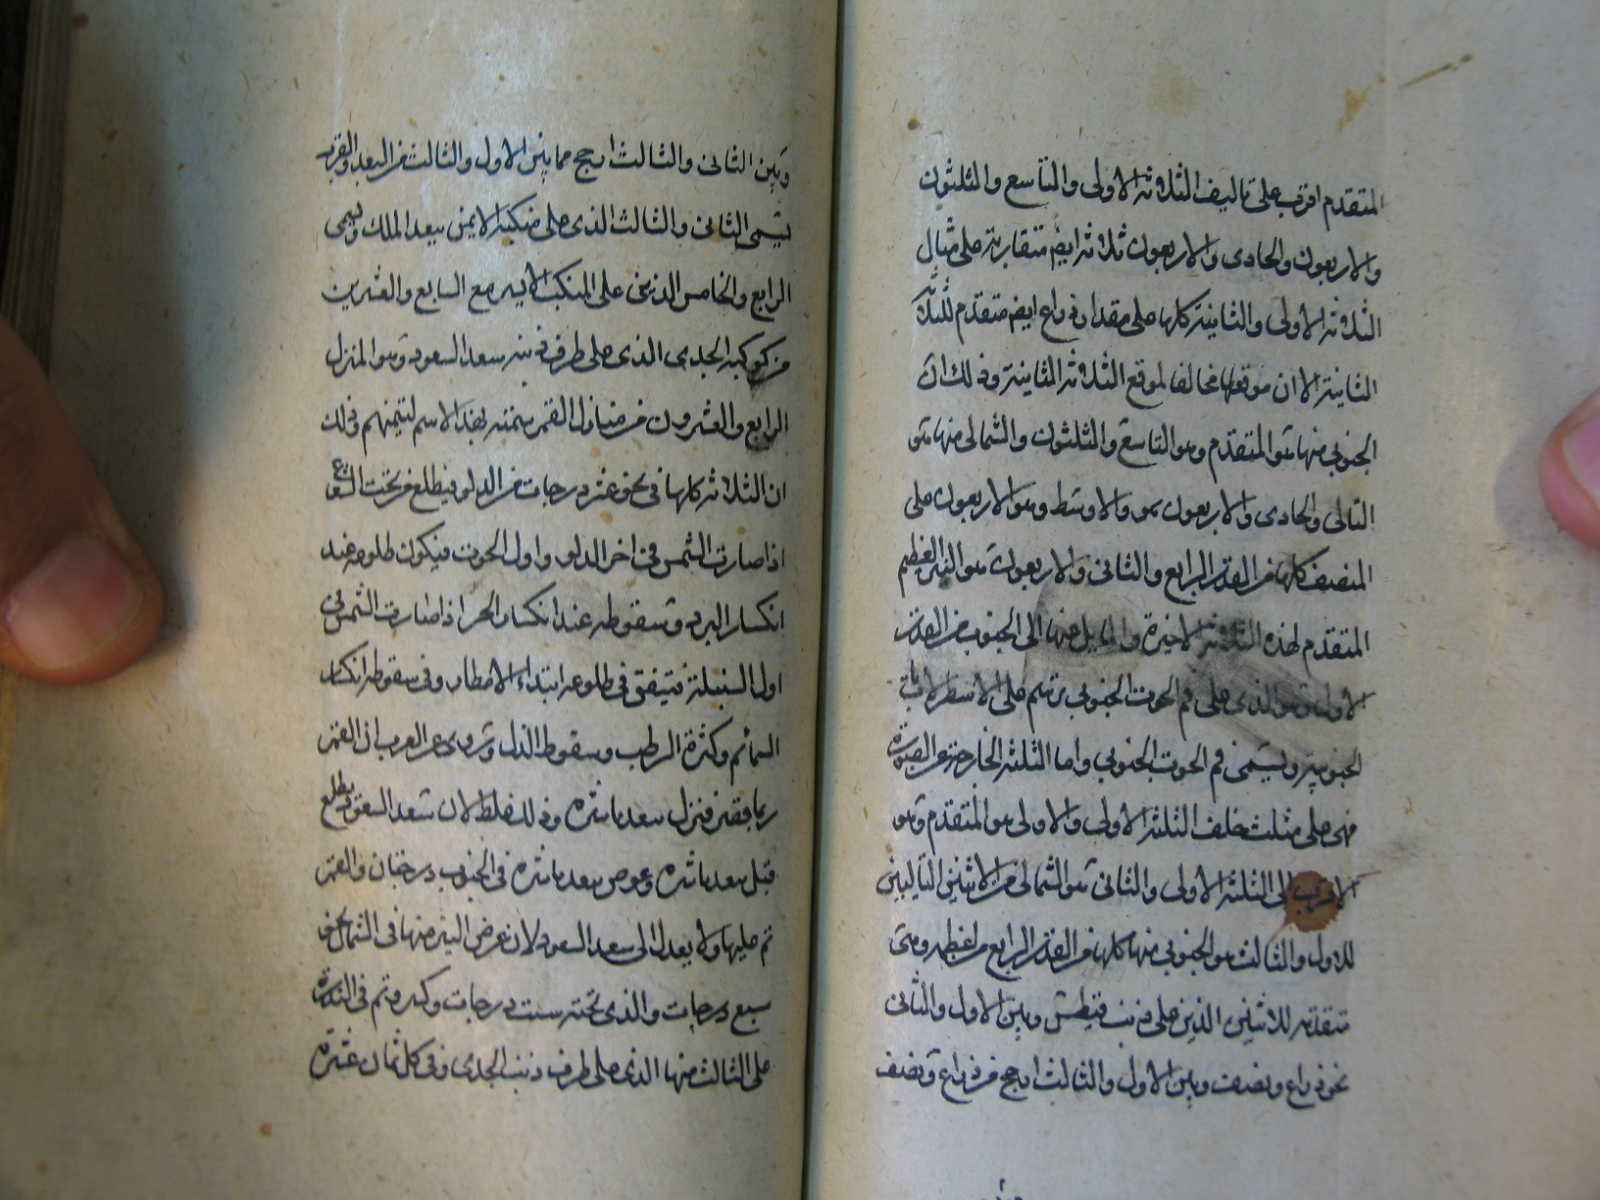 المتقدم اقرب على تاليف الثلاثة الاولى والتاسع والثلثون
والاربعون والحادى والاربعون ثلاثة ايضا متقاربة على مثال
الثلاثة الاولى والثانية كلها على مقدار ذراع ايضا متقدم للثلاثة
الثانية الا ان موقعها مخالف لموقع الثلاثة الثانية وذلك ان
الجنوبي منها هو المتقدم وهو التاسع والثلثون والشمالى منها هو
التالى والحادى والاربعون هو الاوسط وهو الاربعون على
المنصف كلها من القدر الرابع والثانى والاربعون هو النير العظيم
المتقدم لهذه الثلاثة الاخيرة والمايل منها الى الجنوب من القدر
الاول وهو الذى على فم الحوت الجنوبي يرسم على الاسطرلابات
الجنوبية ويسمى فم الحوت الجنوبي واما الثلثة الخارجة عن الصورة
فهى على مثلث خلف الثلثة الاولى والاولى هو المتقدم وهو
الاقرب الى الثلثة الاولى والثانى هو الشمالى من الاثنين التاليين
للاول والثالث هو الجنوبي منها كلها من القدر الرابع من اعظمه وهى
متقدمة للاثنين الذين على ذنب قيطس وبين الاول والثانى
نحو ذراع ونصف وبين الاول والثالث ارجح من ذراع ونصف
وبين الثانى والثالث ارجح مما بين الاول والثالث من البعد والعرب
يسمى الثانى والثالث الذى على منكبه الايمن سعد الملك ويسمى
الرابع والخامس الذين على المنكب الايسر مع السابع والعشرين
من كوكبة الجدى الذى على طرف ذنبه سعد السعود وهو المنزل
الرابع والعشرون من منازل القمر سمته بهذا الاسم لتيمنهم وذلك
ان الثلاثة كلها فى نحو عشر درجات من الدلو فيطلع من تحت الشعاع
اذا صارت الشمس فى اخر الدلو واول الحوت فيكون طلوعه عند
انكسار البرد وسقوطه عند انكسار الحر اذا صارت الشمس فى
اول السنبلة فيتفق فى طلوعه ابتداء الامطار وفى سقوطه انكسار
السمائم وكثرة الرطب وسقوط الطل ويروى عن العرب ان القمر
ربما قصر فنزل سعد ناشرة وذلك غلط لان سعد السعود يطلع
قبل سعد ناشرة وعرض سعد ناشرة فى الجنوب درجتان والقمر
تم عليها ولا يعدل الى سعد السعود لان عرض النير منها فى الشمال نحو
سبع درجات والذى تحته ست درجات وكسر وتم فى الندرة
على الثالث منها الذى على طرف ذنب الجدى وفى كل ثمان عشرة